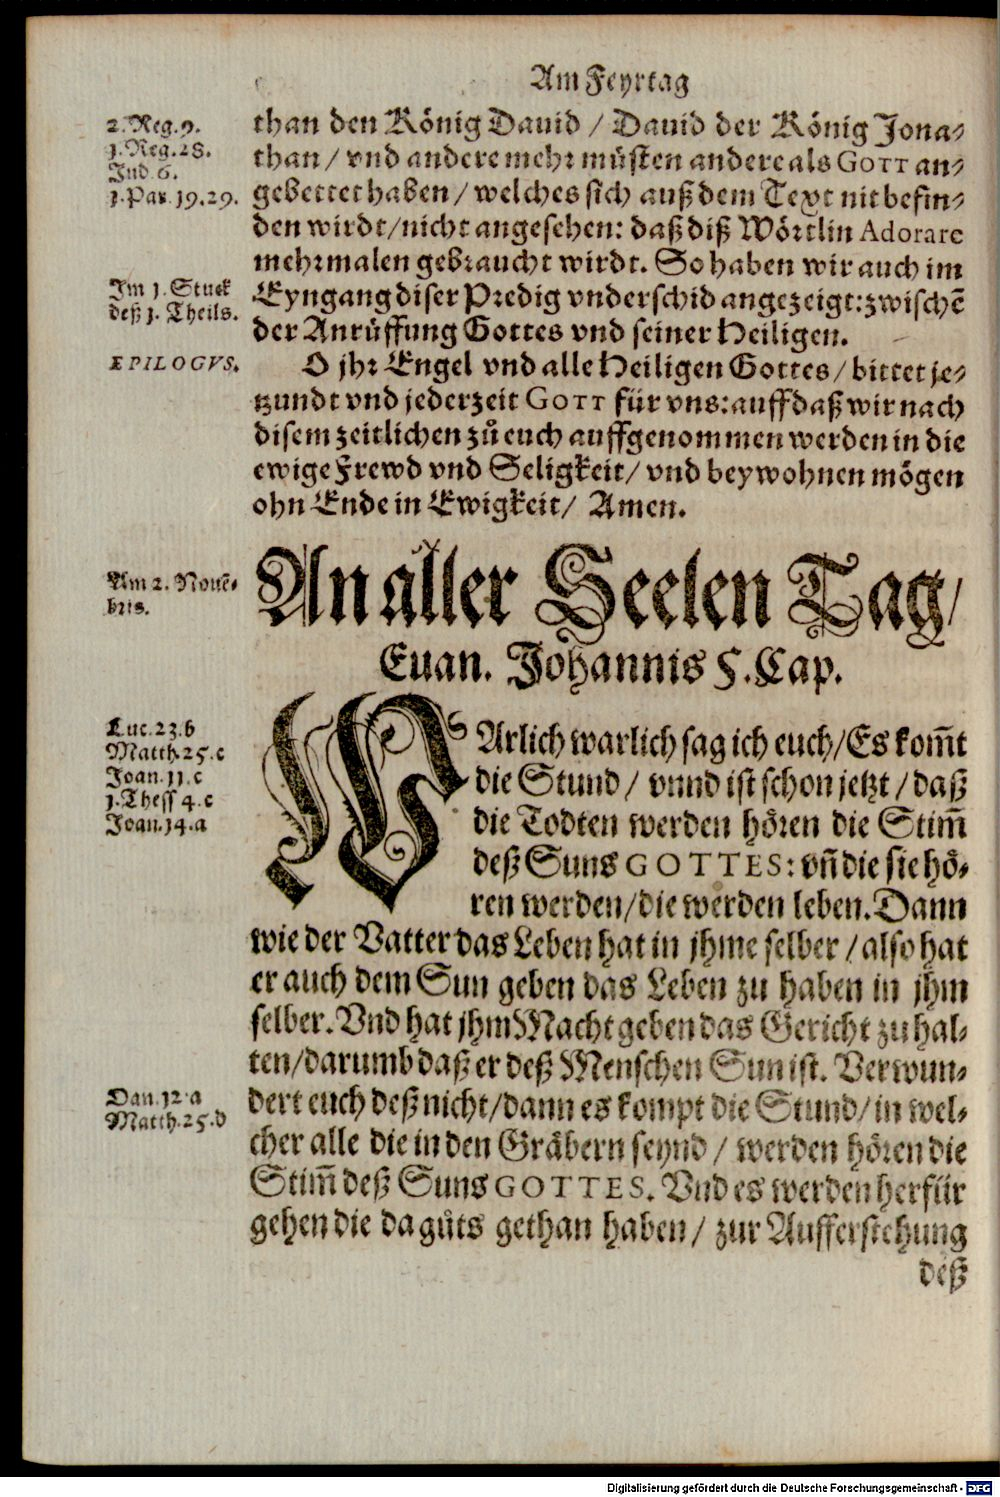 Am Feyrtag
2. Reg. 9.
1. Reg. 28.
Jud. 6.
1. Par. 19. 29.
than den König Dauid / Dauid der König Jona-
than / vnd andere mehr müsten andere als GOTT an-
gebettet haben / welches sich auß dem Text nit befin-
den wirdt / nicht angesehen: daß diß Wörtlin Adorare
mehrmalen gebraucht wirdt. So haben wir auch im
Im 1. Stuck
deß 1. Theils.
Eyngang diser Predig vnderschid angezeigt: zwischē
der Anrüffung Gottes vnd seiner Heiligen.
EPILOGVS.
O jhr Engel vnd alle Heiligen Gottes / bittet je-
tzundt vnd jederzeit GOTT für vns: auff daß wir nach
disem zeitlichen zů euch auffgenommen werden in die
ewige Frewd vnd Seligkeit / vnd beywohnen mögen
ohn Ende in Ewigkeit / Amen.
Am 2. Nouē-
bris.
An aller Seelen Tag /
Euan. Johannis 5. Cap.
Luc. 23. b
Matth. 25. c
Joan. 11. c
1. Thess 4. c
Joan. 14. a
WArlich warlich sag ich euch / Es kom̄t
die Stund / vnnd ist schon jetzt / daß
die Todten werden hören die Stim̄
deß Suns GOTTES: vn̄ die sie hö-
ren werden / die werden leben. Dann
wie der Vatter das Leben hat in jhme selber / also hat
er auch dem Sun geben das Leben zu haben in jhm
selber. Vnd hat jhm Macht geben das Gericht zu hal-
ten / darumb daß er deß Menschen Sun ist. Verwun-
Dan. 12. a
Matth. 25. d
dert euch deß nicht / dann es kompt die Stund / in wel-
cher alle die in den Gräbern seynd / werden hören die
Stim̄ deß Suns GOTTES. Vnd es werden herfür
gehen die da gůts gethan haben / zur Aufferstehung
deß
Digitalisierung gefördert durch die Deutsche Forschungsgemeinschaft - DFG